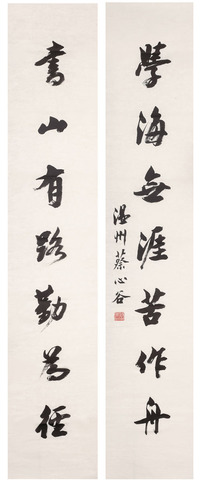 學海無涯苦作舟
温州蔡心谷
書山有路勤為徑